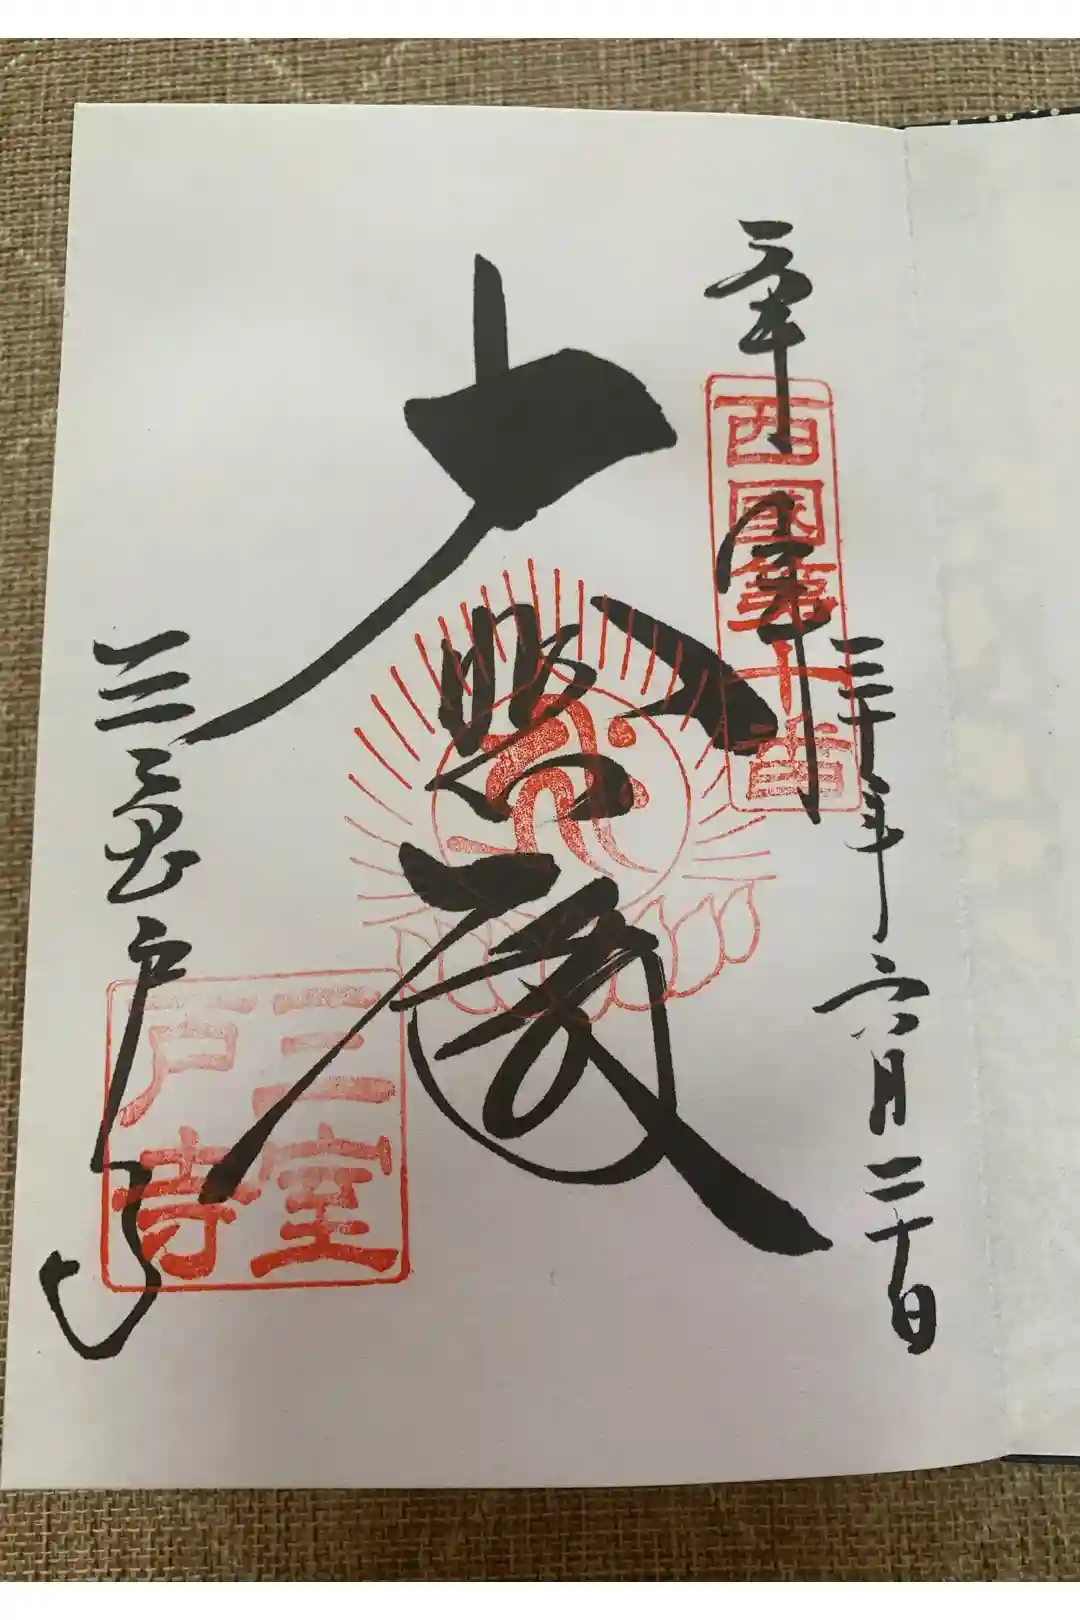 奉拝
西國第十番
三十年六月二十日
大悲殿
三室戸寺
三室
戸寺